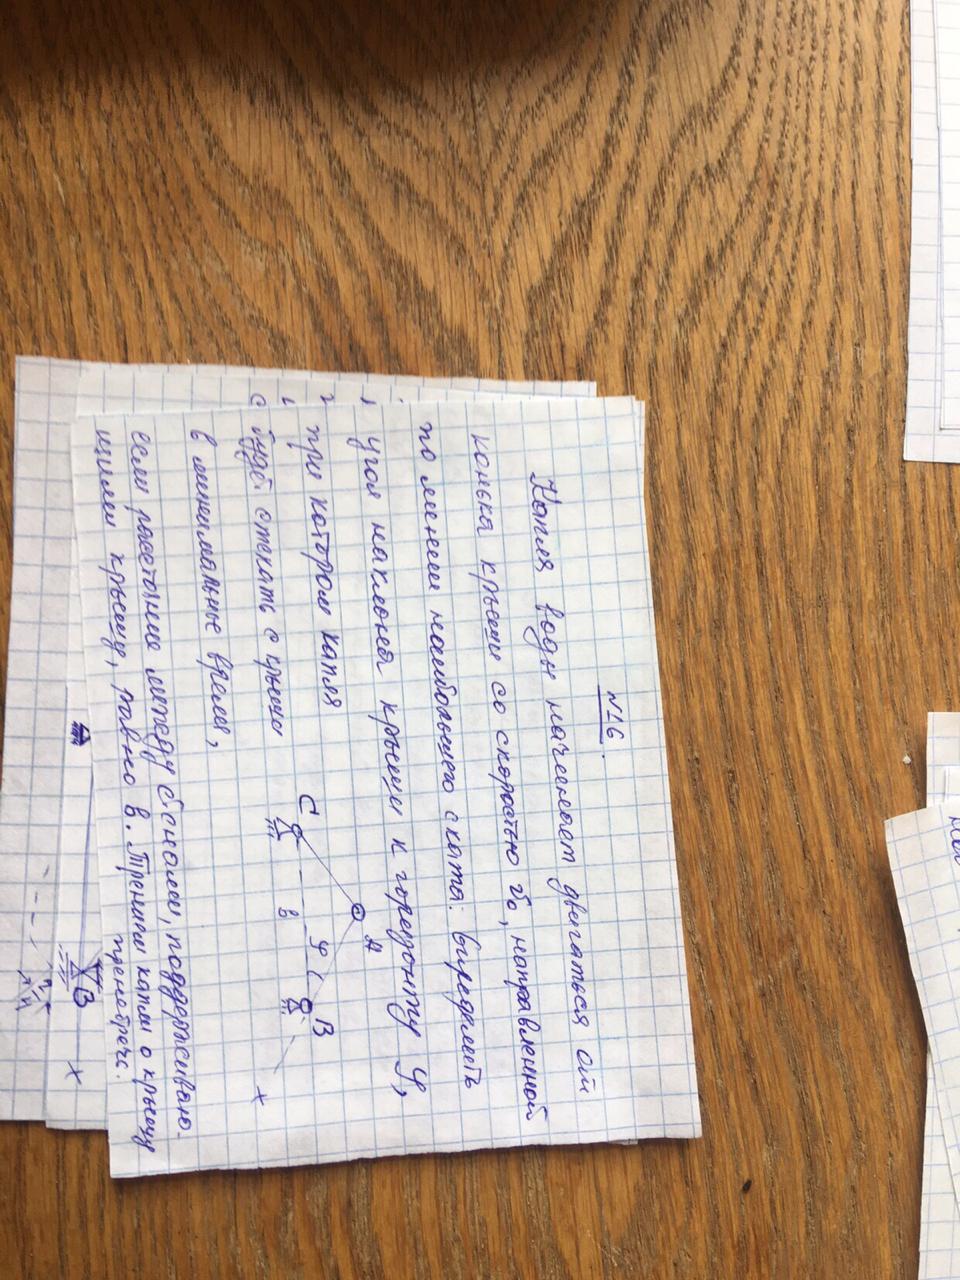 №16
Капля воды начинает двигаться от
конька крыши со скоростью v₀, направленной
по линии наибольшего ската. Определить
угол наклона крыши к горизонту φ,
при котором капля
будет стекать с крыши
в минимальное время,
если расстояние между стенами, поддерживаю-
щими крышу, равно в. Трением капли о крышу
пренебречь.
A
C
φ
B
в
x
B
x